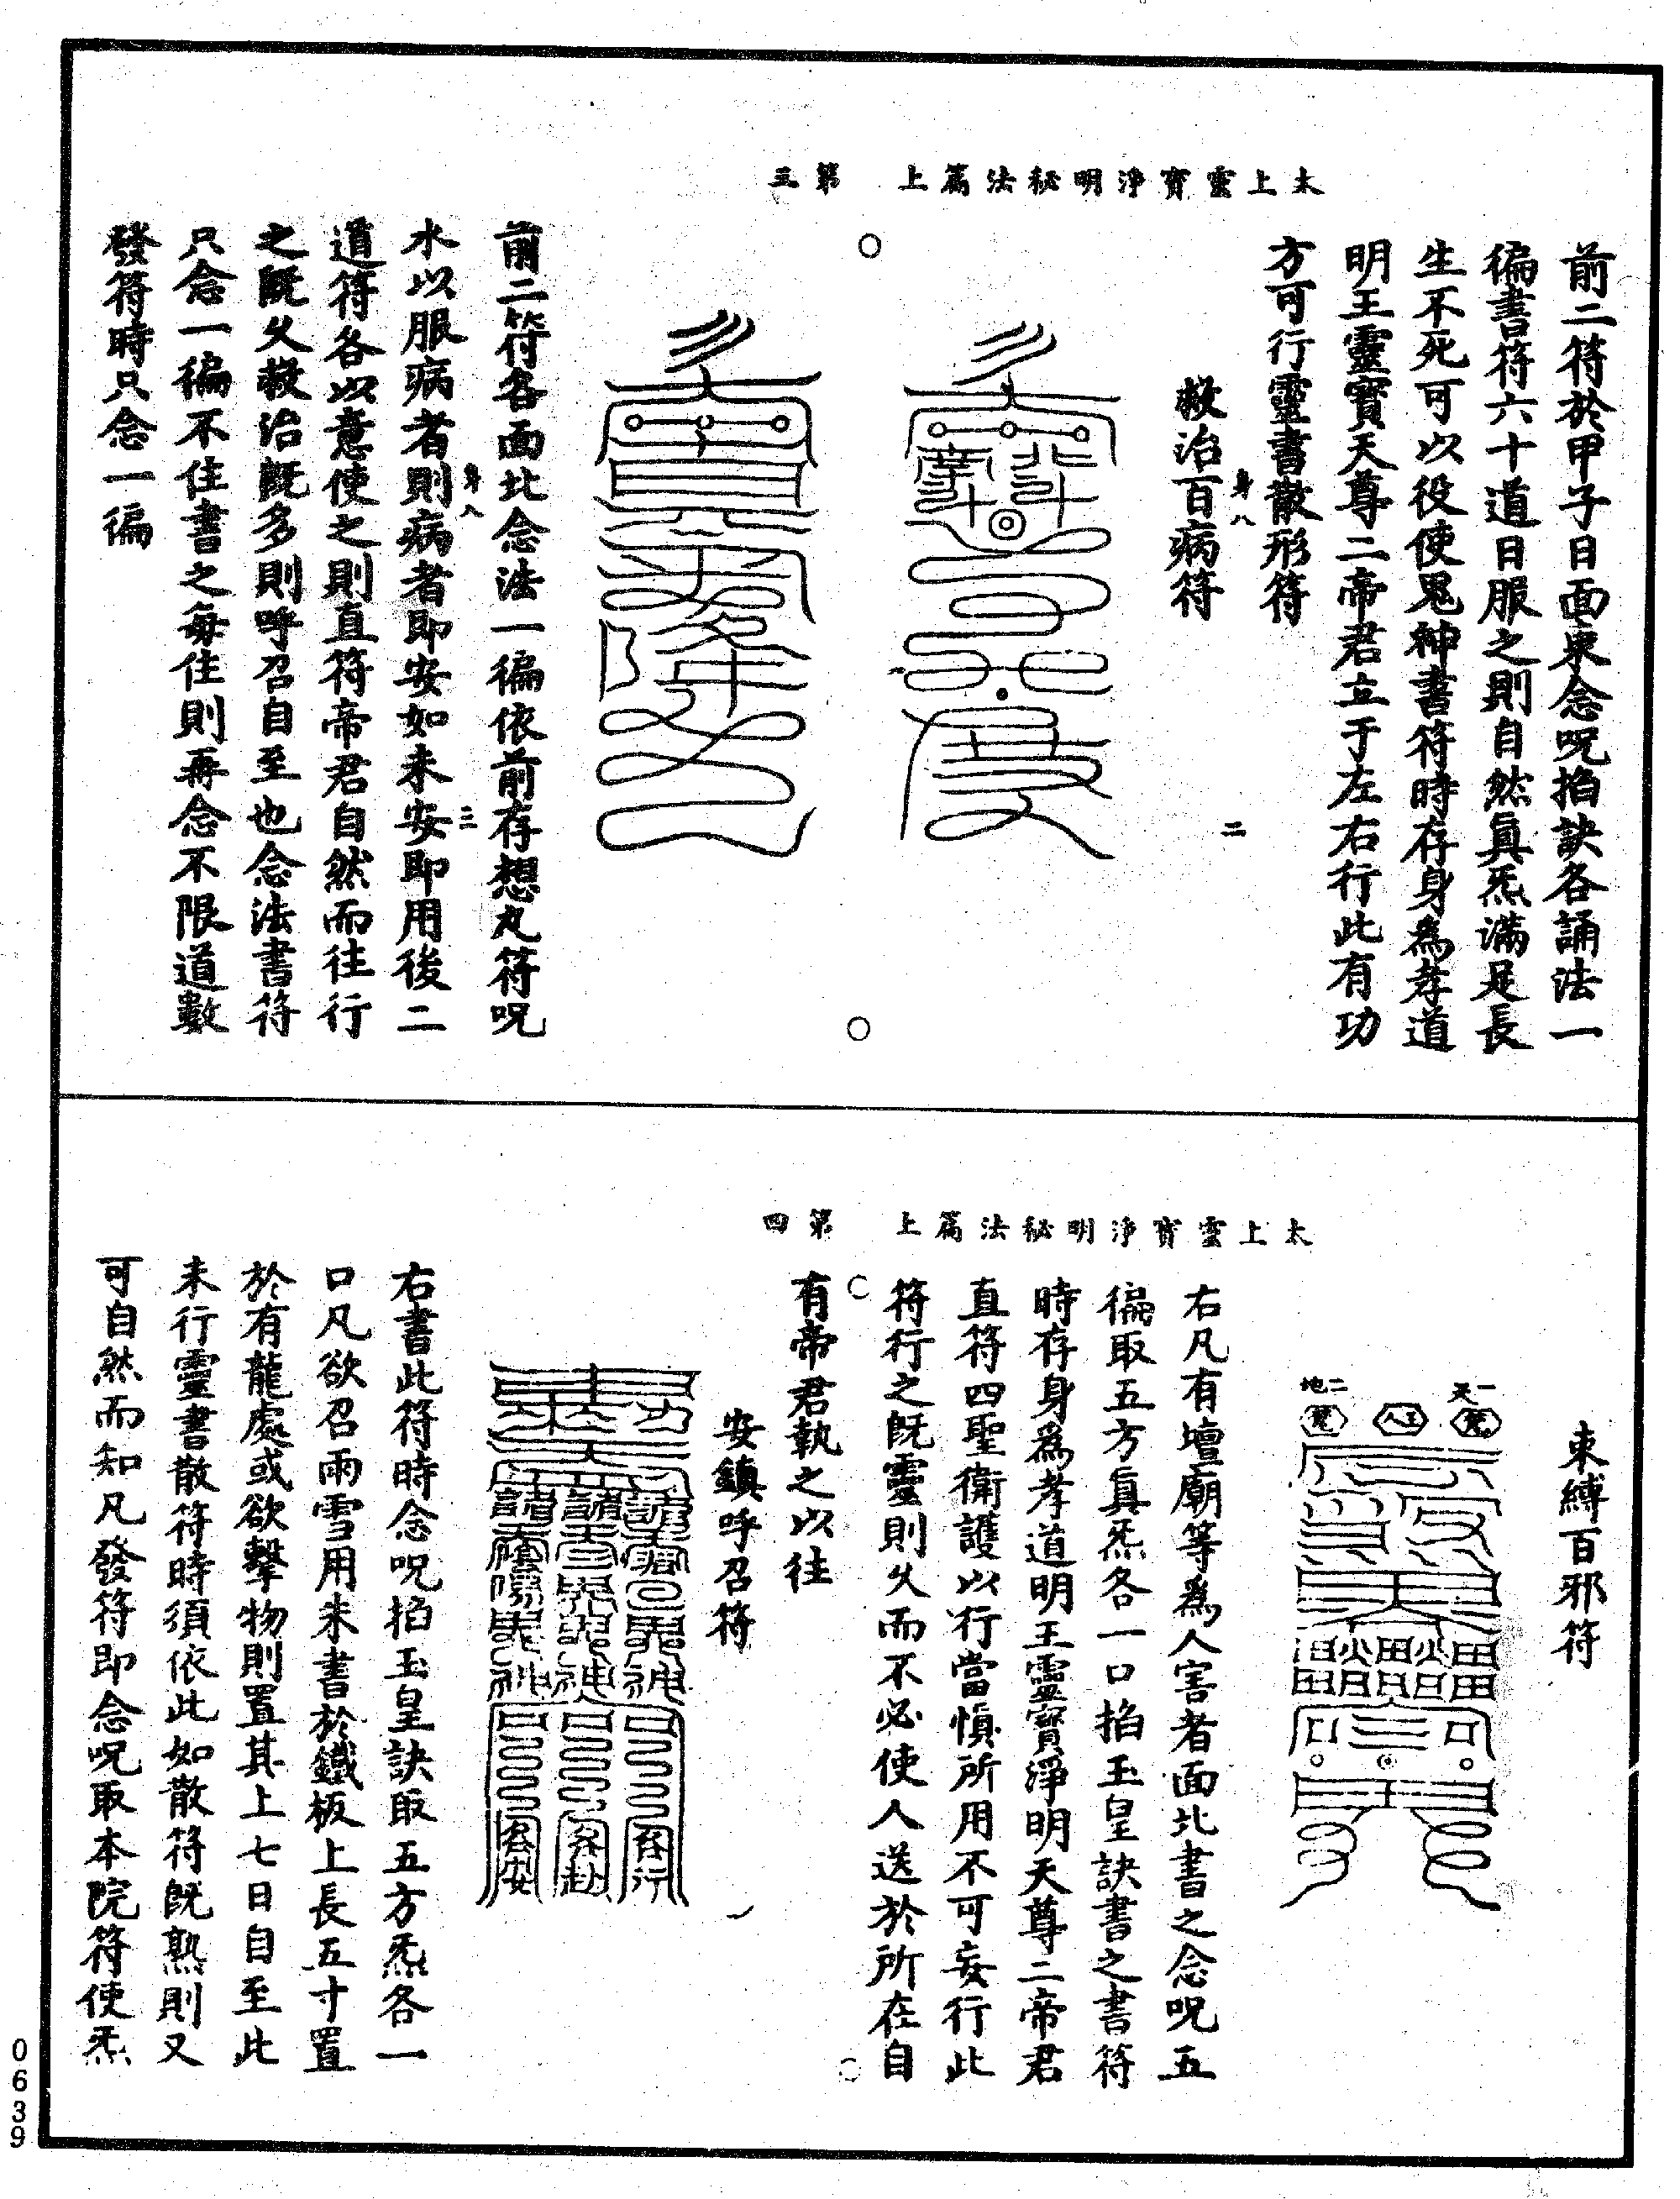 太上靈寶淨明秘法篇上　第三
前二符於甲子日面東念呪掐訣各誦法一
徧書符六十道日服之則自然眞炁滿足長
生不死可以役使鬼神書符時存身為孝道
明王靈寶天尊二帝君立于左右行此有功
方可行靈書散形符
身八
二
救治百病符
前二符各面北念法一徧依前存想丸符呪
水以服病者則病者即安如未安即用後二
身八
三
道符各以意使之則直符帝君自然而往行
之既久救治既多則呼召自至也念法書符
只念一徧不住書之每住則再念不限道數
發符時只念一徧
太上靈寶淨明秘法篇上　第四
束縛百邪符
一天
二地
右凡有壇廟等為人害者面北書之念呪五
徧取五方眞炁各一口掐玉皇訣書之書符
時存身爲孝道明王靈寶淨明天尊二帝君
直符四聖衛護以行當愼所用不可妄行此
符行之既靈則久而不必使人送於所在自
有帝君執之以往
安鎮呼召符
右書此符時念呪掐玉皇訣取五方炁各一
口凡欲召雨雪用朱書於鐵板上長五寸置
於有龍處或欲擊物則置其上七日自至此
未行靈書散符時須依此如散符既熟則又
可自然而知凡發符即念呪取本院符使炁
0639